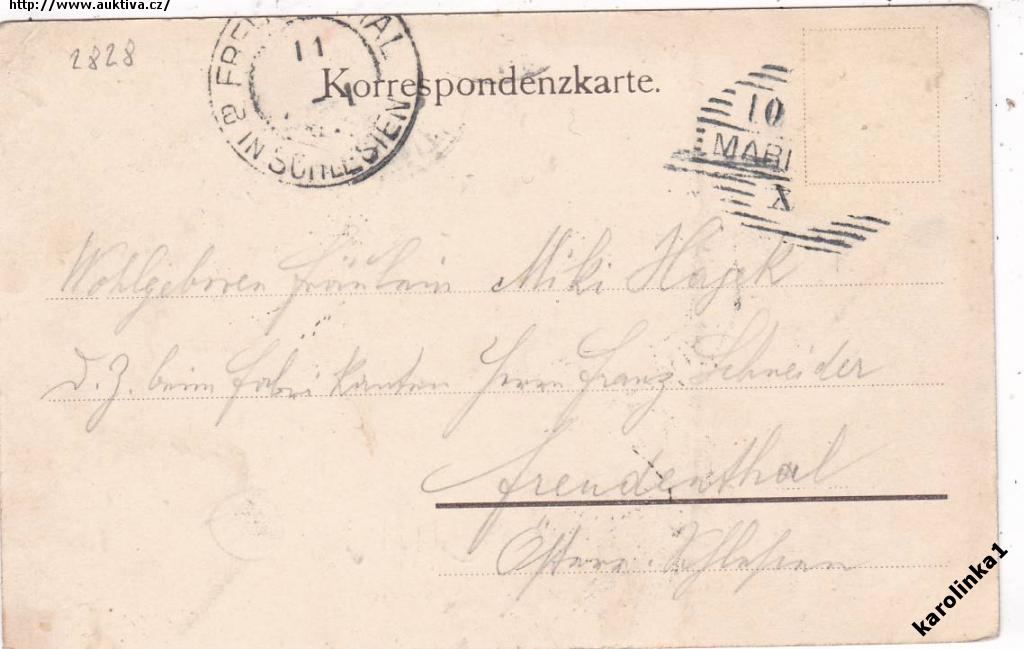 http://www.auktiva.cz/
2828
11
IN SCHLESIEN
Korrespondenzkarte.
10
MARI
X
Wohlgeboren Fräulein Miki Hajek
d. Z. beim Fabrikanten Herrn Franz Schneider
Freudenthal
Österr. Schlesien
karolinka1